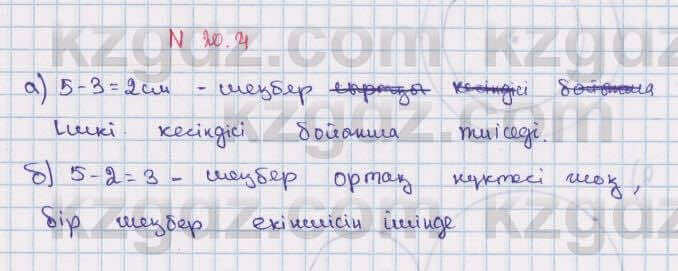 N 20.4
а) 5-3=2см - шеңбер сыртқа кесіндісі бойынша
Ішкі кесіндісі бойынша тиіседі.
б) 5-2=3 - шеңбер ортақ нүктесі жоқ,
бір шеңбер екіншісін ішінде